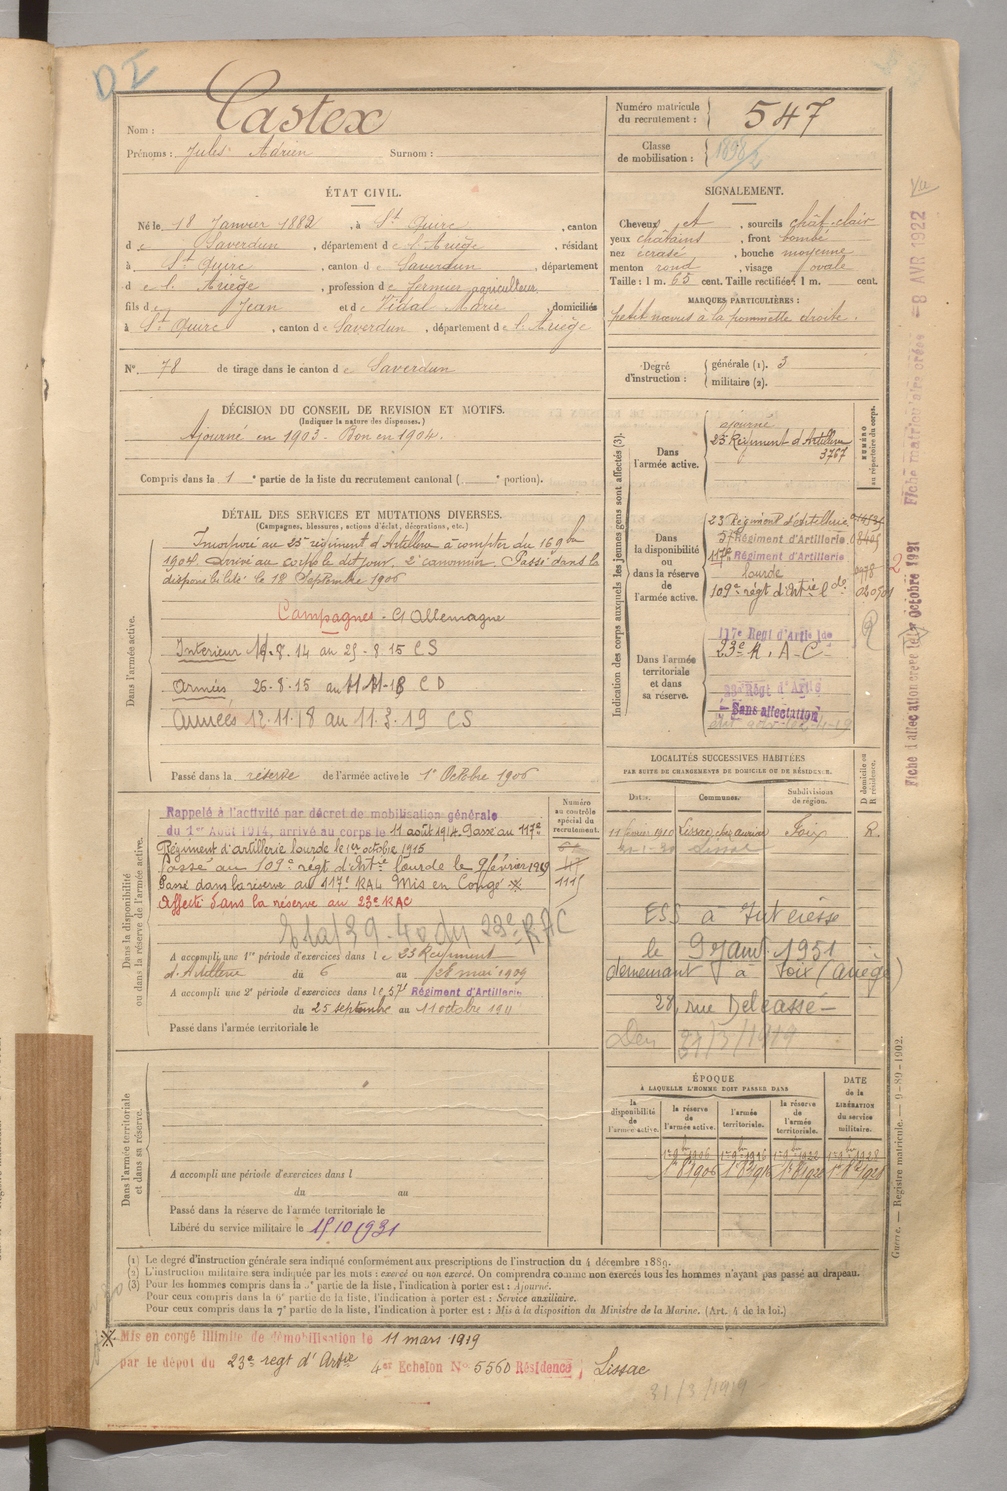 DI
Nom : Castex
Prénoms : Jules Adrien Surnom :
Numéro matricule du recrutement : 547
Classe de mobilisation : 1898/2
ÉTAT CIVIL.
Né le 18 Janvier 1882, à St Quirc, canton
d e Saverdun, département d e l'Ariège, résidant
à St Quirc, canton d e Saverdun, département
d e l'Ariège, profession de fermier agriculteur
fils d e Jean et d e Vidal Marie, domiciliés
à St Quirc, canton d e Saverdun, département d e l'Ariège
N° 78 de tirage dans le canton d e Saverdun
SIGNALEMENT.
Cheveux et, sourcils chât-clair
yeux châtains, front bombé
nez écrasé, bouche moyenne
menton rond, visage ovale
Taille : 1 m. 63 cent. Taille rectifiée : 1 m. cent.
MARQUES PARTICULIÈRES :
petit naevus à la pommette droite.
Degré d'instruction : générale (1). 3
militaire (2).
DÉCISION DU CONSEIL DE REVISION ET MOTIFS.
(Indiquer la nature des dispenses.)
Ajourné en 1903. Bon en 1904.
Compris dans la 1e partie de la liste du recrutement cantonal ( e portion).
DÉTAIL DES SERVICES ET MUTATIONS DIVERSES.
(Campagnes, blessures, actions d'éclat, décorations, etc.)
Dans l'armée active.
Incorporé au 23e régiment d'Artillerie à compter du 16 9bre
1904. arrivé au corps le dit jour. 2e canonnier. Passé dans la
disponibilité le 18 Septembre 1906
Campagnes - Ct Allemagne
Intérieur 11-8-14 au 25-8-15 CS
Armées 26-8-15 au 11-11-18 CD
Armées 12-11-18 au 11-3-19 CS
Passé dans la réserve de l'armée active le 1er Octobre 1906
Indication des corps auxquels les jeunes gens sont affectés (3).
NUMÉRO au répertoire du corps.
Dans l'armée active.
ajourné
23e Régiment d'Artillerie
3767
Dans la disponibilité ou dans la réserve de l'armée active.
23 Régiment d'Artillerie
57 Régiment d'Artillerie
117e Régiment d'Artillerie
lourde
109e régt d'Artie lde
Dans l'armée territoriale et dans sa réserve.
117e Régt d'Artie lde
23e R. A-C
Régt d'Artie
Sans affectation
Dans la disponibilité ou dans la réserve de l'armée active.
Numéro au contrôle spécial du recrutement.
1115
Rappelé à l'activité par décret de mobilisation générale
du 1er Août 1914, arrivé au corps le 11 août 1914. Passé au 117e
Régiment d'artillerie lourde le 1er octobre 1915
Passé au 109e régt d'Artie lourde le 9 février 1919
Passé dans la réserve au 117e RAL Mis en Congé ※
Affecté dans la réserve au 23e RAC
A accompli une 1re période d'exercices dans l e 23 Régiment
d'Artillerie du 6 au 28 mai 1909
A accompli une 2e période d'exercices dans l e 57 Régiment d'Artillerie
du 25 septembre au 11 octobre 1911
Passé dans l'armée territoriale le
LOCALITÉS SUCCESSIVES HABITÉES
PAR SUITE DE CHANGEMENTS DE DOMICILE OU DE RÉSIDENCE.
Dates. Communes. Subdivisions de région. D domicile ou R résidence.
11 février 1910 Lissac Foix R.
Lissac
le 9 janv. 1951
demeurant à Foix (Ariège)
28, rue Delcassé
31/3/1919
ÉPOQUE
À LAQUELLE L'HOMME DOIT PASSER DANS
la disponibilité de l'armée active. la réserve de l'armée active. l'armée territoriale. la réserve de l'armée territoriale.
DATE de la LIBÉRATION du service militaire.
Dans l'armée territoriale et dans sa réserve.
A accompli une période d'exercices dans l
du au
Passé dans la réserve de l'armée territoriale le
Libéré du service militaire le 15.10.1931
(1) Le degré d'instruction générale sera indiqué conformément aux prescriptions de l'instruction du 4 décembre 1889.
(2) L'instruction militaire sera indiquée par les mots : exercé ou non exercé. On comprendra comme non exercés tous les hommes n'ayant pas passé au drapeau.
(3) Pour les hommes compris dans la 2e partie de la liste, l'indication à porter est : Ajourné.
Pour ceux compris dans la 6e partie de la liste, l'indication à porter est : Service auxiliaire.
Pour ceux compris dans la 7e partie de la liste, l'indication à porter est : Mis à la disposition du Ministre de la Marine. (Art. 4 de la loi.)
※ Mis en congé illimité de démobilisation le 11 mars 1919
par le dépôt du 23e régt d'Artie 4er Echelon N° 5560 Résidence Lissac
31/3/1919
Fiche matriculaire créée 8 AVR 1922 Vu
Fiche d'affectation créée le Octobre 1921
Guerre. — Registre matricule. — 9-89-1902.